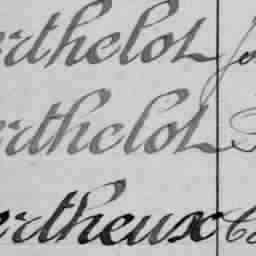 erthelot
erthelot
ertheux